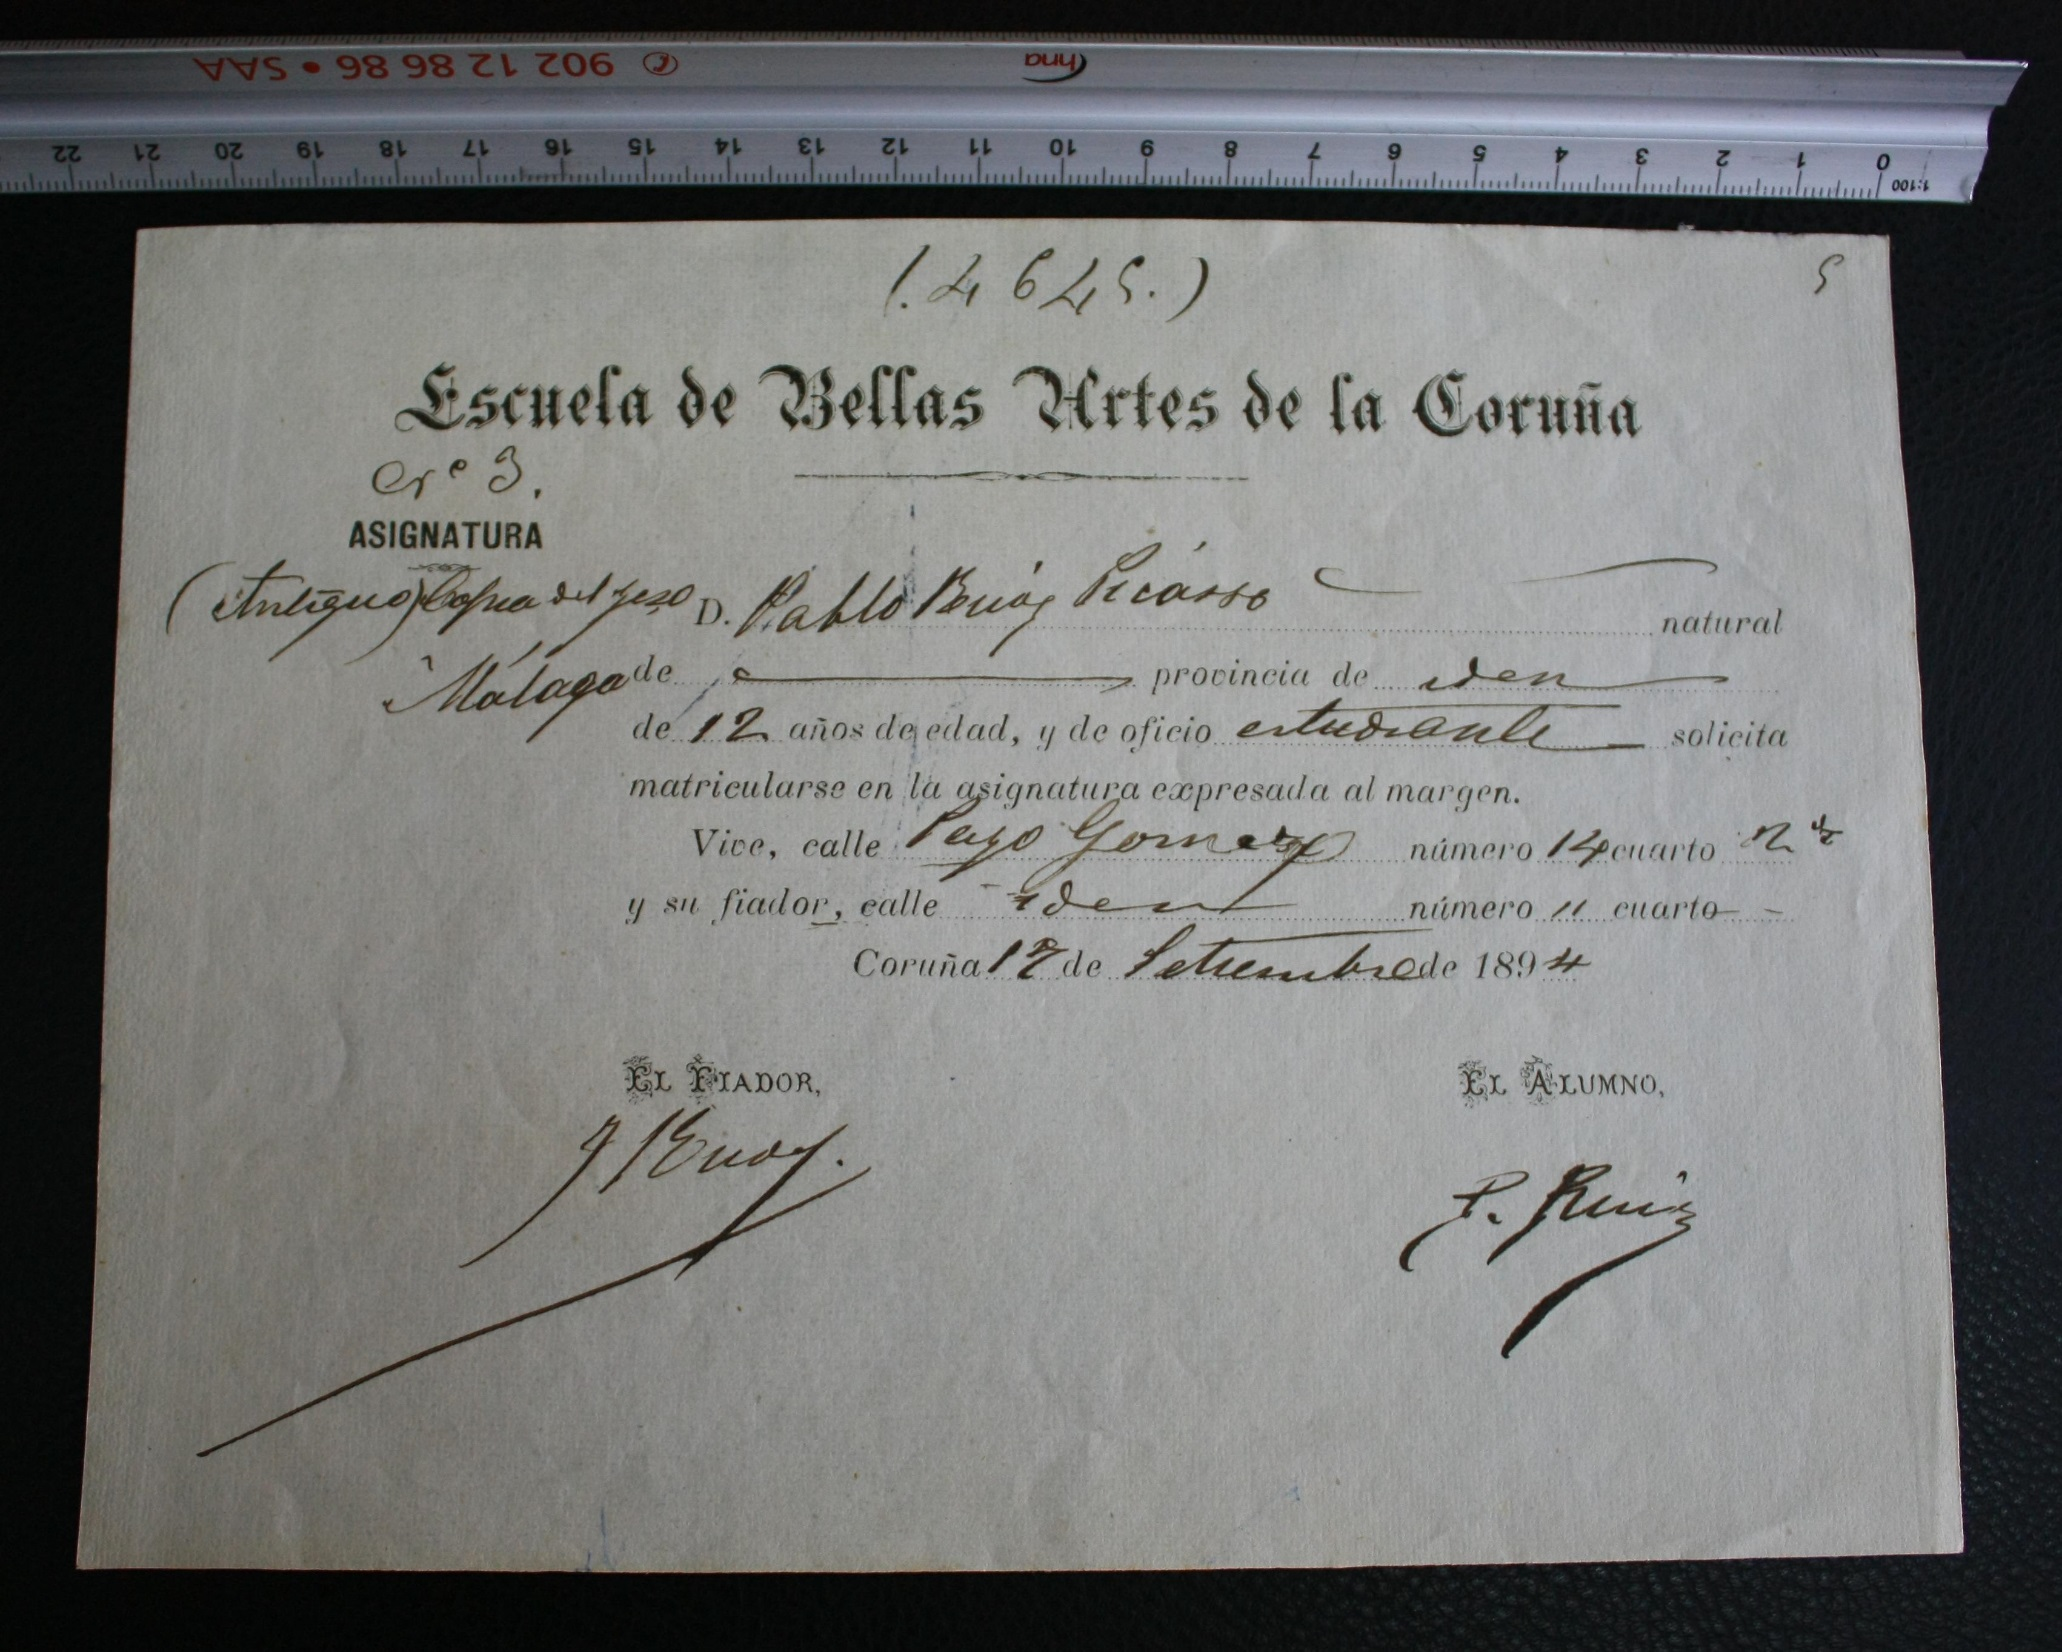 ✆ 902 12 86 86 • SAA
hna
22 21 20 19 18 17 16 15 14 13 12 11 10 9 8 7 6 5 4 3 2 1 0 1:100
(.4645.)
5
Escuela de Bellas Artes de la Coruña
Nº 3.
ASIGNATURA
(Antiguo) Copia del Yeso D. Pablo Ruiz Picásso natural
Málaga de provincia de iden
de 12 años de edad, y de oficio estudiante solicita
matricularse en la asignatura expresada al margen.
Vive, calle Payo Gomez número 14 cuarto 2º
y su fiador, calle iden número " cuarto -
Coruña 17 de Setiembre de 1894
EL FIADOR,
EL ALUMNO,
J Ruiz.
P. Ruiz